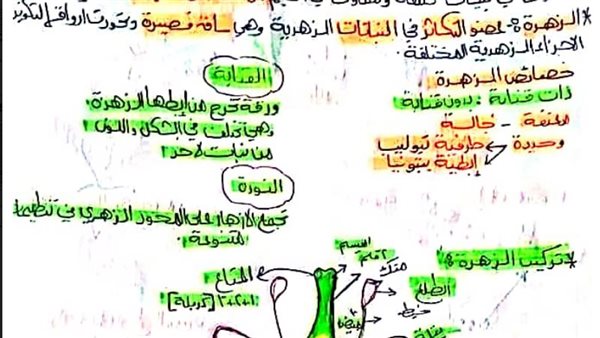 * الزهرة: عضو التكاثر في النباتات الزهرية وهي ساق قصيرة وتحورت أوراقه لتكوين
الاجزاء الزهرية المختلفة.
خصائص الزهرة
ذات قنابة: بدون قنابة
معنقة - جالسة
وحيدة
طرفية تيوليب
إبطية بيتونيا
القنابة
ورقة تخرج من إبطها الزهرة.
وهي تختلف في الشكل واللون
من نبات لآخر
النورة
تجمع الازهار على المحور الزهري في تنظيمات
متنوعة.
* تركيب الزهرة:
الميسم
قلم
المتاع
[كربلة]
متك
الطلع
خيط
مبيض
بتلة